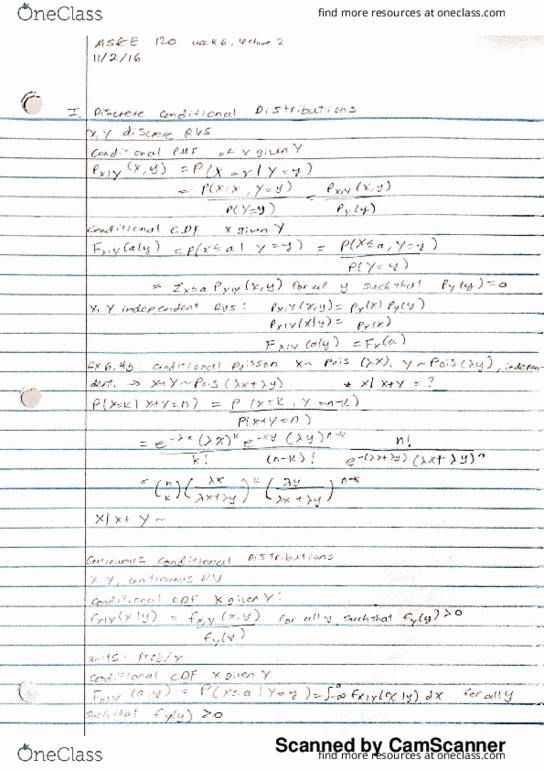 OneClass
find more resources at oneclass.com
MS&E 120 week 6, lecture 2
11/2/16
I. Discrete Conditional Distributions
X, Y discrete RVs
Conditional PMF of X given Y
P_{X|Y}(x,y) = P(X=x | Y=y)
= P(X=x, Y=y) / P(Y=y) = P_{X,Y}(x,y) / P_Y(y)
Conditional CDF X given Y
F_{X|Y}(a|y) = P(X≤a | Y=y) = P(X≤a, Y=y) / P(Y=y)
= Σ_{x≤a} P_{X|Y}(x,y) for all y such that P_Y(y)=0
X, Y independent RVs: P_{X,Y}(x,y) = P_X(x) P_Y(y)
P_{X|Y}(x|y) = P_X(x)
F_{X|Y}(a|y) = F_X(a)
Ex 6.4b: conditional Poisson X~ Pois (λx), Y ~ Pois(λy), indepen-
dent. → X+Y ~ Pois (λx+λy) * X| X+Y = ?
P(X=k | X+Y=n) = P(X=k, Y=n-k) / P(X+Y=n)
= e^{-λx} (λx)^k / k! e^{-λy} (λy)^{n-k} / (n-k)! n! / e^{-(λx+λy)} (λx+λy)^n
= (n k) (λx / λx+λy)^k (λy / λx+λy)^{n-k}
X| X+ Y ~
Continuous Conditional Distributions
X Y, continuous RV
Conditional CDF X given Y:
f_{X|Y}(x|y) = f_{X,Y}(x,y) / f_Y(y) for all y such that f_Y(y)>0
units = Prob/x
Conditional CDF X given Y
F_{X|Y}(a,y) = P(X≤a | Y=y) = ∫_{-∞}^{a} f_{X|Y}(x|y) dx for all y
such that f_Y(y) > 0
Scanned by CamScanner
OneClass
find more resources at oneclass.com